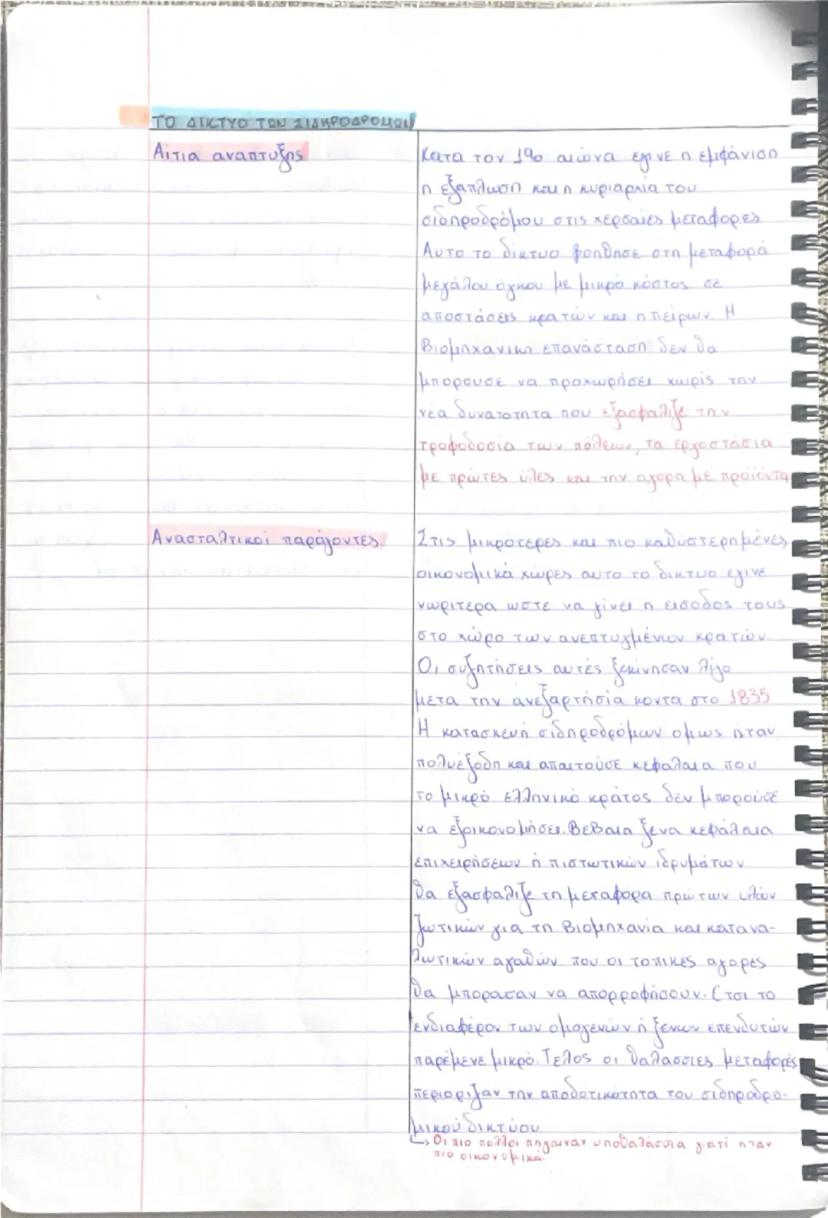 ΤΟ ΔΙΚΤΥΟ ΤΩΝ ΣΙΔΗΡΟΔΡΟΜΩΝ
Αίτια αναπτυξης
Κατα τον 19ο αιώνα εγινε η εμφάνιση
η εξαπλωση και η κυριαρχία του
σιδηροδρόμου στις χερσαίες μεταφορες
Αυτο το δίκτυο βοηθησε στη μεταφορά
μεγάλου όγκου με μικρό κόστος σε
αποστάσεις κρατών και ηπείρων. Η
Βιομηχανικη επανάσταση δεν θα
μπορουσε να προχωρήσει χωρίς την
νέα δυνατότητα που εξασφάλιζε την
τροφοδοσία των πόλεων, τα εργοστάσια
με πρώτες ύλες και την αγορα με προϊόντα
Ανασταλτικοί παράγοντες
Στις μικρότερες και πιο καθυστερημένες
οικονομικά χώρες αυτο το δίκτυο εγινε
νωριτερα ωστε να γίνει η εισοδος τους
στο χώρο των ανεπτυγμένων κρατών
Οι συζητήσεις αυτές ξεκίνησαν λίγο
μετα την ανεξαρτησία κοντα στο 1835
Η κατασκευή σιδηροδρόμων ομως ηταν
πολυέξοδη και απαιτούσε κεφαλαια που
το μικρό ελληνικό κράτος δεν μπορούσε
να εξοικονομήσει. Βεβαια ξενα κεφάλαια
επιχειρήσεων ή πιστωτικών ιδρυμάτων
θα εξασφαλιζε τη μεταφορα πρωτων υλών
ζωτικών για τη Βιομηχανία και κατανα-
λωτικών αγαθών που οι τοπικες αγορες
θα μπορασαν να απορροφήσουν. Ετσι το
ενδιαφέρον των ομογενών ή ξενων επενδυτών
παρέμενε μικρό. Τελος οι θαλασσιες μεταφορές
περιοριζαν την αποδοτικότητα του σιδηροδρο-
μικού δικτύου
↳ Οι πιο πολλοι πηγαιναν υποθαλάσσια γιατί ηταν
πιο οικονομικά.